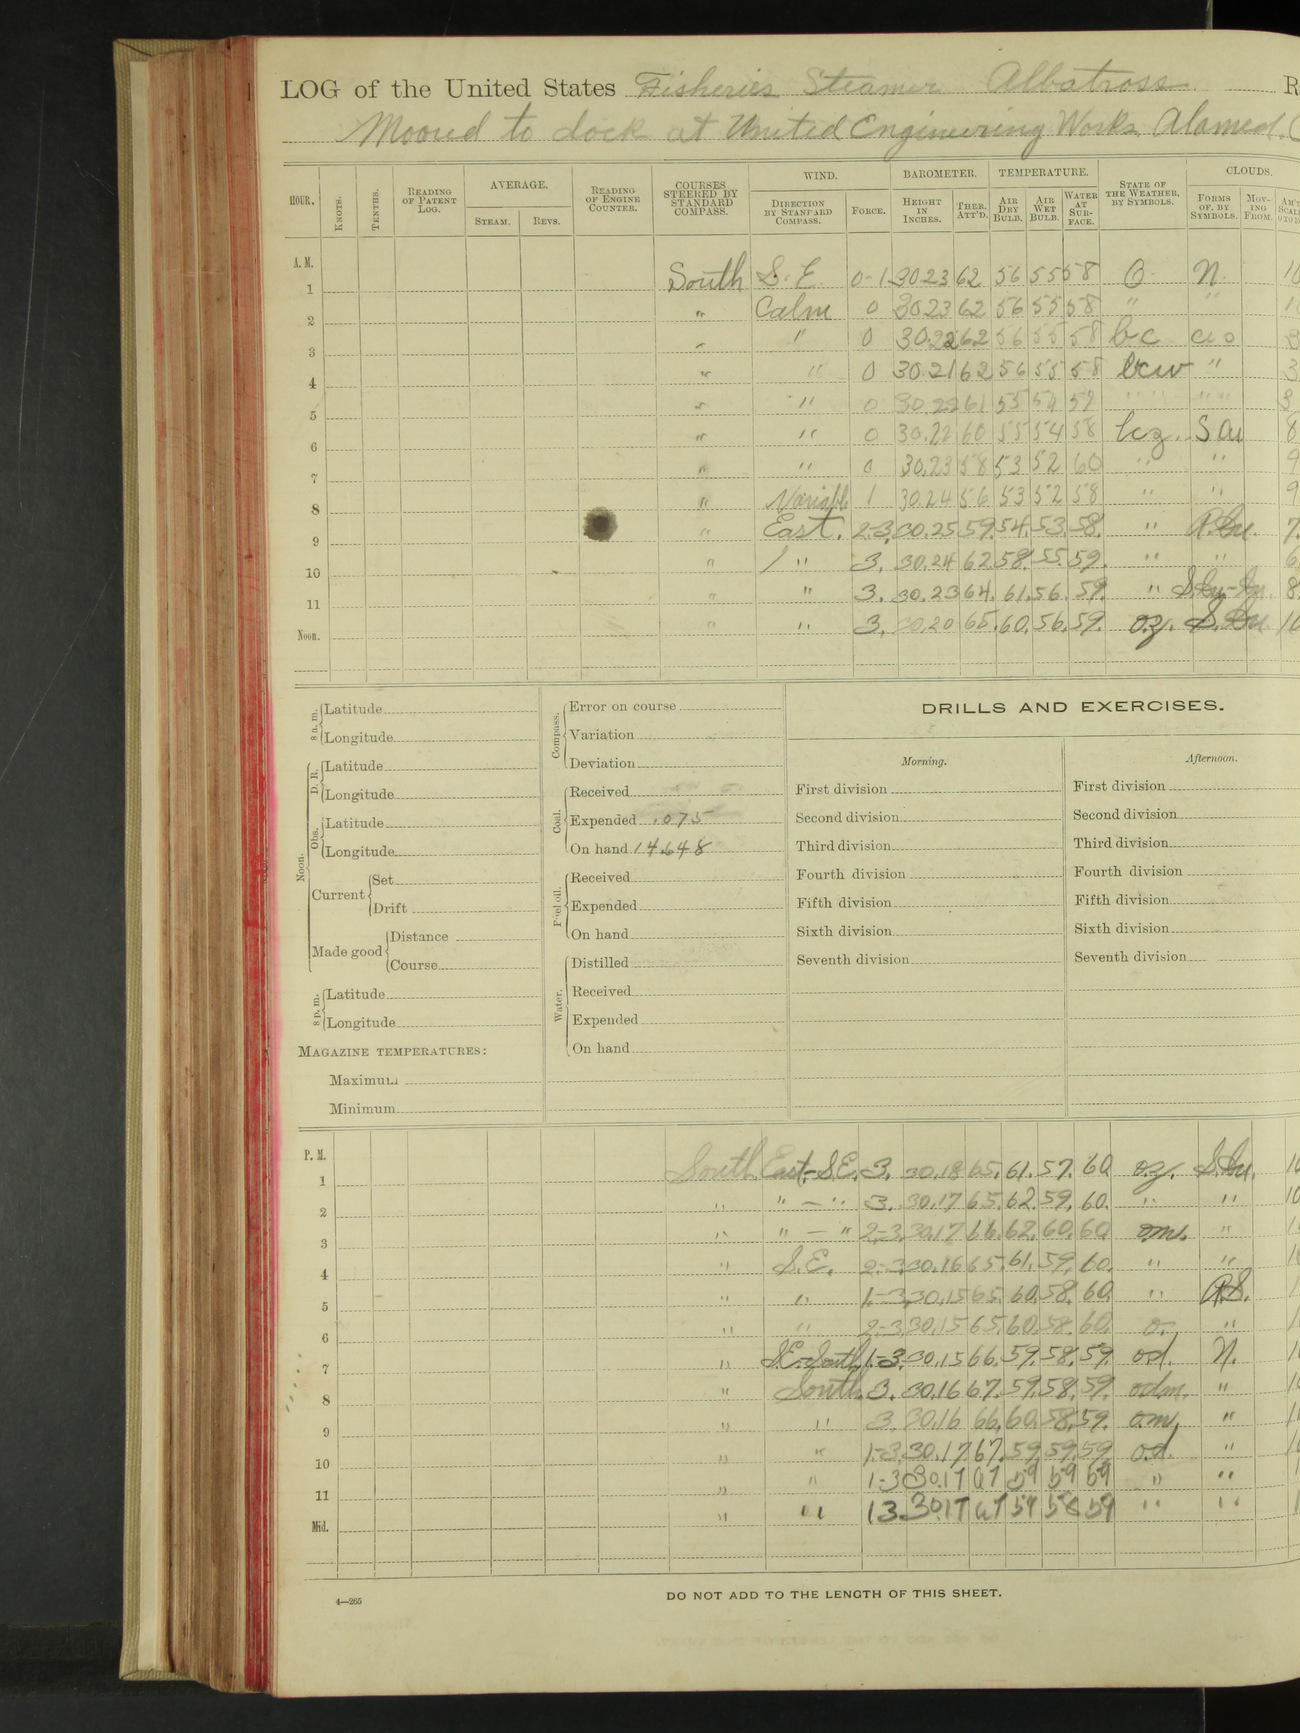 LOG of the United States Fisheries Steamer Albatross R
Moored to dock at United Engineering Works Alamed. C
HOUR. KNOTS. TENTHS. READING OF PATENT LOG. AVERAGE. STEAM. REVS. READING OF ENGINE COUNTER. COURSES STEERED BY STANDARD COMPASS. WIND. DIRECTION BY STANDARD COMPASS. FORCE. BAROMETER. HEIGHT IN INCHES. THER. ATT'D. TEMPERATURE. AIR DRY BULB. AIR WET BULB. WATER AT SURFACE. STATE OF THE WEATHER, BY SYMBOLS. CLOUDS. FORMS OF, BY SYMBOLS. MOVING FROM.
A. M.
1 South S. E. 0-1 30.23 62 56 55 58 O N. 10
2 " Calm 0 30.23 62 56 55 58 " "
3 " " 0 30.22 62 56 55 58 bc
4 " " 0 30.21 62 56 55 58 bcw " 3
5 " " 0 30.22 61 55 54 57 " " 3
6 " " 0 30.22 60 55 54 58 bcz. 8
7 " " 0 30.23 58 53 52 60 " " 9
8 " Variable 1 30.24 56 53 52 58 " " 9
9 " East. 2-3. 30.25 59. 54. 53. 58. " 7.
10 " " 3. 30.24 62. 58. 55. 59. " " 6
11 " " 3. 30.23 64. 61. 56. 59. " 8.
Noon. " " 3. 30.20 65. 60. 56. 59. oz. S.Cu. 10
8 a.m. Latitude
Longitude
Noon. D. R. Latitude
Longitude
Obs. Latitude
Longitude
Current Set
Drift
Made good Distance
Course
8 p.m. Latitude
Longitude
MAGAZINE TEMPERATURES:
Maximum
Minimum
Compass. Error on course
Variation
Deviation
Coal. Received
Expended .075
On hand 14.648
Fuel oil. Received
Expended
On hand
Water. Distilled
Received
Expended
On hand
DRILLS AND EXERCISES.
Morning. Afternoon.
First division First division
Second division Second division
Third division Third division
Fourth division Fourth division
Fifth division Fifth division
Sixth division Sixth division
Seventh division Seventh division
P. M.
1 South East-S.E. 3. 30.18 65. 61. 57. 60. oz. S.Cu. 10
2 " " — " 3. 30.17 65. 62. 59. 60. " " 10
3 " " — " 2-3. 30.17 66. 62. 60. 60. om. "
4 " S.E. 2-3. 30.16 65. 61. 59. 60. " "
5 " " 1-3. 30.15 65. 60. 58. 60. "
6 " " 2-3. 30.15 65. 60. 58. 60. o. "
7 " S.E.-South 1-3. 30.15 66. 59. 58. 59. od. N.
8 " South. 3. 30.16 67. 59. 58. 59. odm. "
9 " " 3. 30.16 66. 60. 58. 59. om. "
10 " " 1-3. 30.17 67. 59. 59. 59. o.d. "
11 " " 1-3 30.17 67 59 59 59 " "
Mid. " " 1 3 30.17 67 59 58 59 " "
4—265 DO NOT ADD TO THE LENGTH OF THIS SHEET.